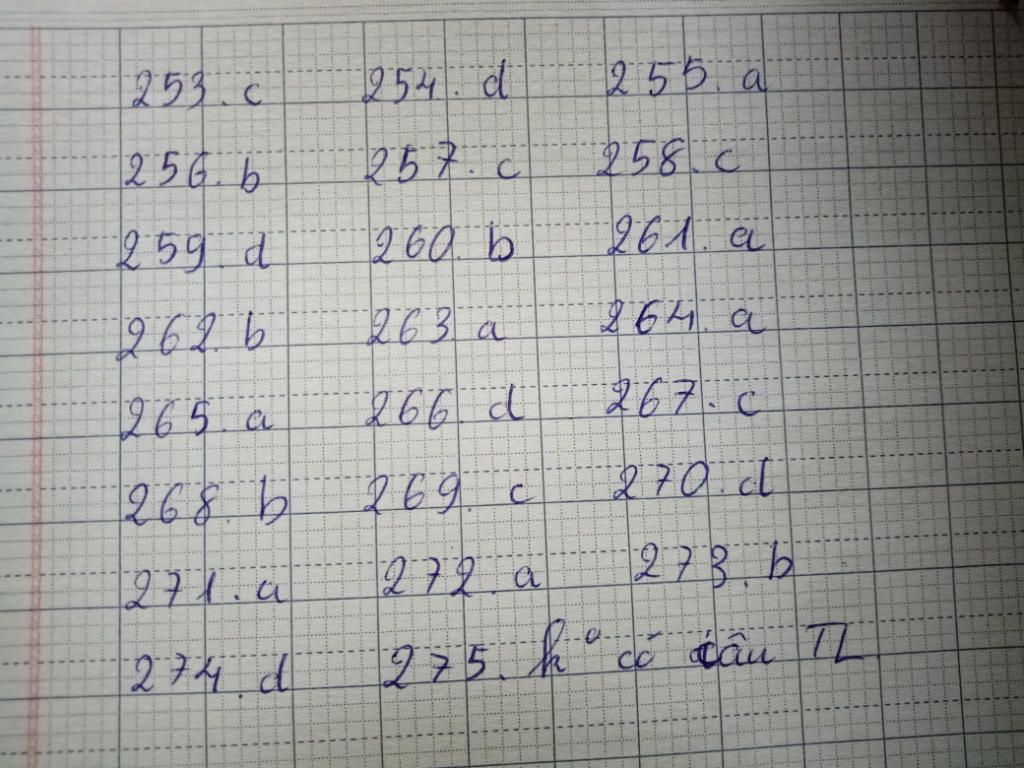 253. c 254. d 255. a
256. b 257. c 258. c
259. d 260. b 261. a
262. b 263. a 264. a
265. a 266. d 267. c
268. b 269. c 270. d
271. a 272. a 273. b
274. d 275. k° có câu TL